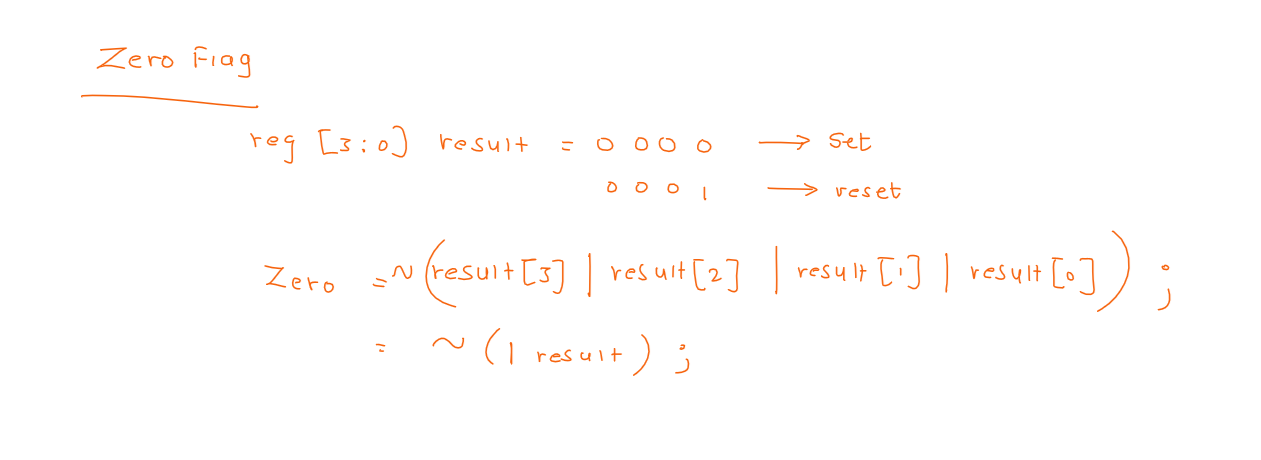 Zero Flag
reg [3:0] result = 0 0 0 0 → Set
0 0 0 1 → reset
Zero = ~(result[3] | result[2] | result[1] | result[0]) ;
= ~ (| result) ;